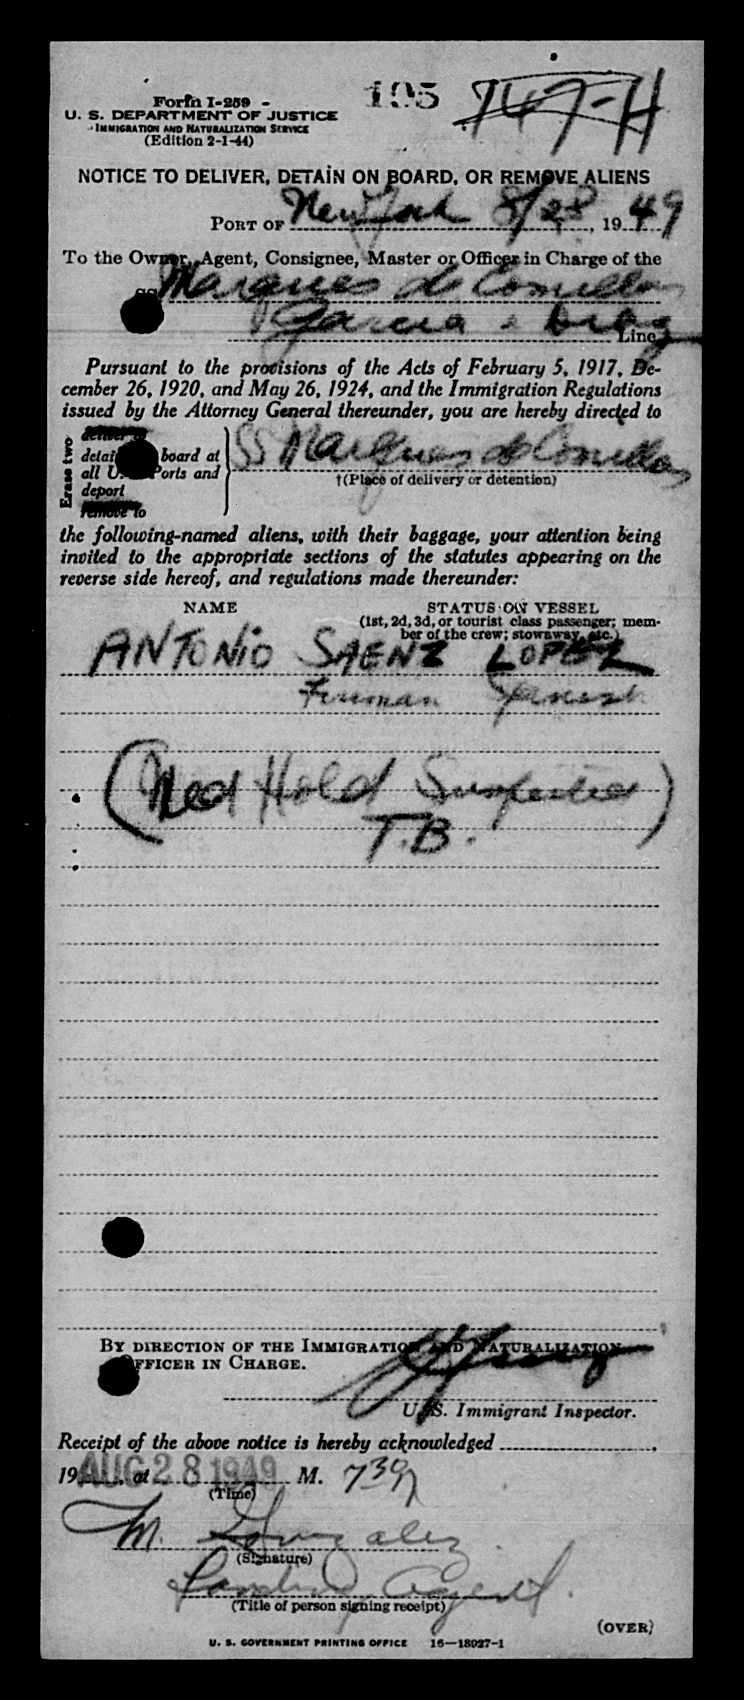 195 747-H
Form I-259
U. S. DEPARTMENT OF JUSTICE
IMMIGRATION AND NATURALIZATION SERVICE
(Edition 2-1-44)
NOTICE TO DELIVER, DETAIN ON BOARD, OR REMOVE ALIENS
PORT OF New York 8/28, 1949
To the Owner, Agent, Consignee, Master or Officer in Charge of the
SS Marques de Comillas
Garcia & Diaz Line
Pursuant to the provisions of the Acts of February 5, 1917, De-
cember 26, 1920, and May 26, 1924, and the Immigration Regulations
issued by the Attorney General thereunder, you are hereby directed to
Erase two
deliver to
detain board at
all U. Ports and
deport
remove to
SS Marques de Comillas
†(Place of delivery or detention)
the following-named aliens, with their baggage, your attention being
invited to the appropriate sections of the statutes appearing on the
reverse side hereof, and regulations made thereunder:
NAME STATUS ON VESSEL
(1st, 2d, 3d, or tourist class passenger; mem-
ber of the crew; stowaway, etc.)
ANTONIO SAENZ LOPEZ
Fireman Spanish
(Med Hold Suspected
T.B.)
BY DIRECTION OF THE IMMIGRATION AND NATURALIZATION
OFFICER IN CHARGE.
U. S. Immigrant Inspector.
Receipt of the above notice is hereby acknowledged
19 AUG 28 1949, at M. 7 30
(Time)
M. Gonzalez
(Signature)
Landing Agent.
(Title of person signing receipt)
(OVER)
U. S. GOVERNMENT PRINTING OFFICE 16—18927-1